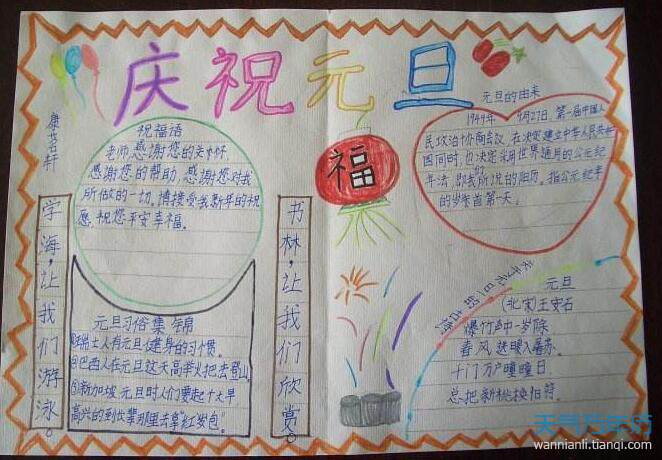 庆祝元旦
康茗轩
祝福语
老师,感谢您的关怀,
感谢您的帮助,感谢您对我
所做的一切,请接受我新年的祝
愿,祝您平安幸福。
学海,让我们游泳。
书林,让我们欣赏。
元旦习俗集锦
①瑞士人有元旦健身的习惯。
②巴西人在元旦这天高举火把去登山
③新加坡元旦时人们要起个大早
高兴的到长辈那里去拿"红发包"
福
元旦的由来
1949年 9月27日,第一届中国人
民政治协商会议,在决定建立中华人民共和
国同时,也决定采用世界通用的公元纪
年法,即我们所说的阳历。指公元纪年
的岁末首第一天。
关于元旦的古诗
元旦
(北宋)王安石
爆竹声中一岁除
春风送暖入屠苏。
千门万户曈曈日,
总把新桃换旧符。
天气万年历
wannianli.tianqi.com